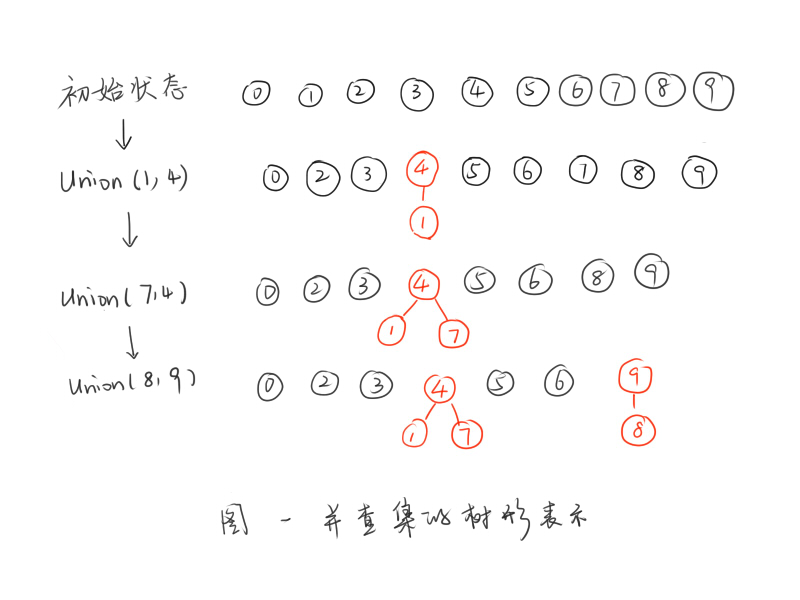 初始状态 0 1 2 3 4 5 6 7 8 9
Union(1,4) 0 2 3 4 5 6 7 8 9
1
Union(7,4) 0 2 3 4 5 6 8 9
1 7
Union(8,9) 0 2 3 4 5 6 9
1 7 8
图一 并查集的树形表示